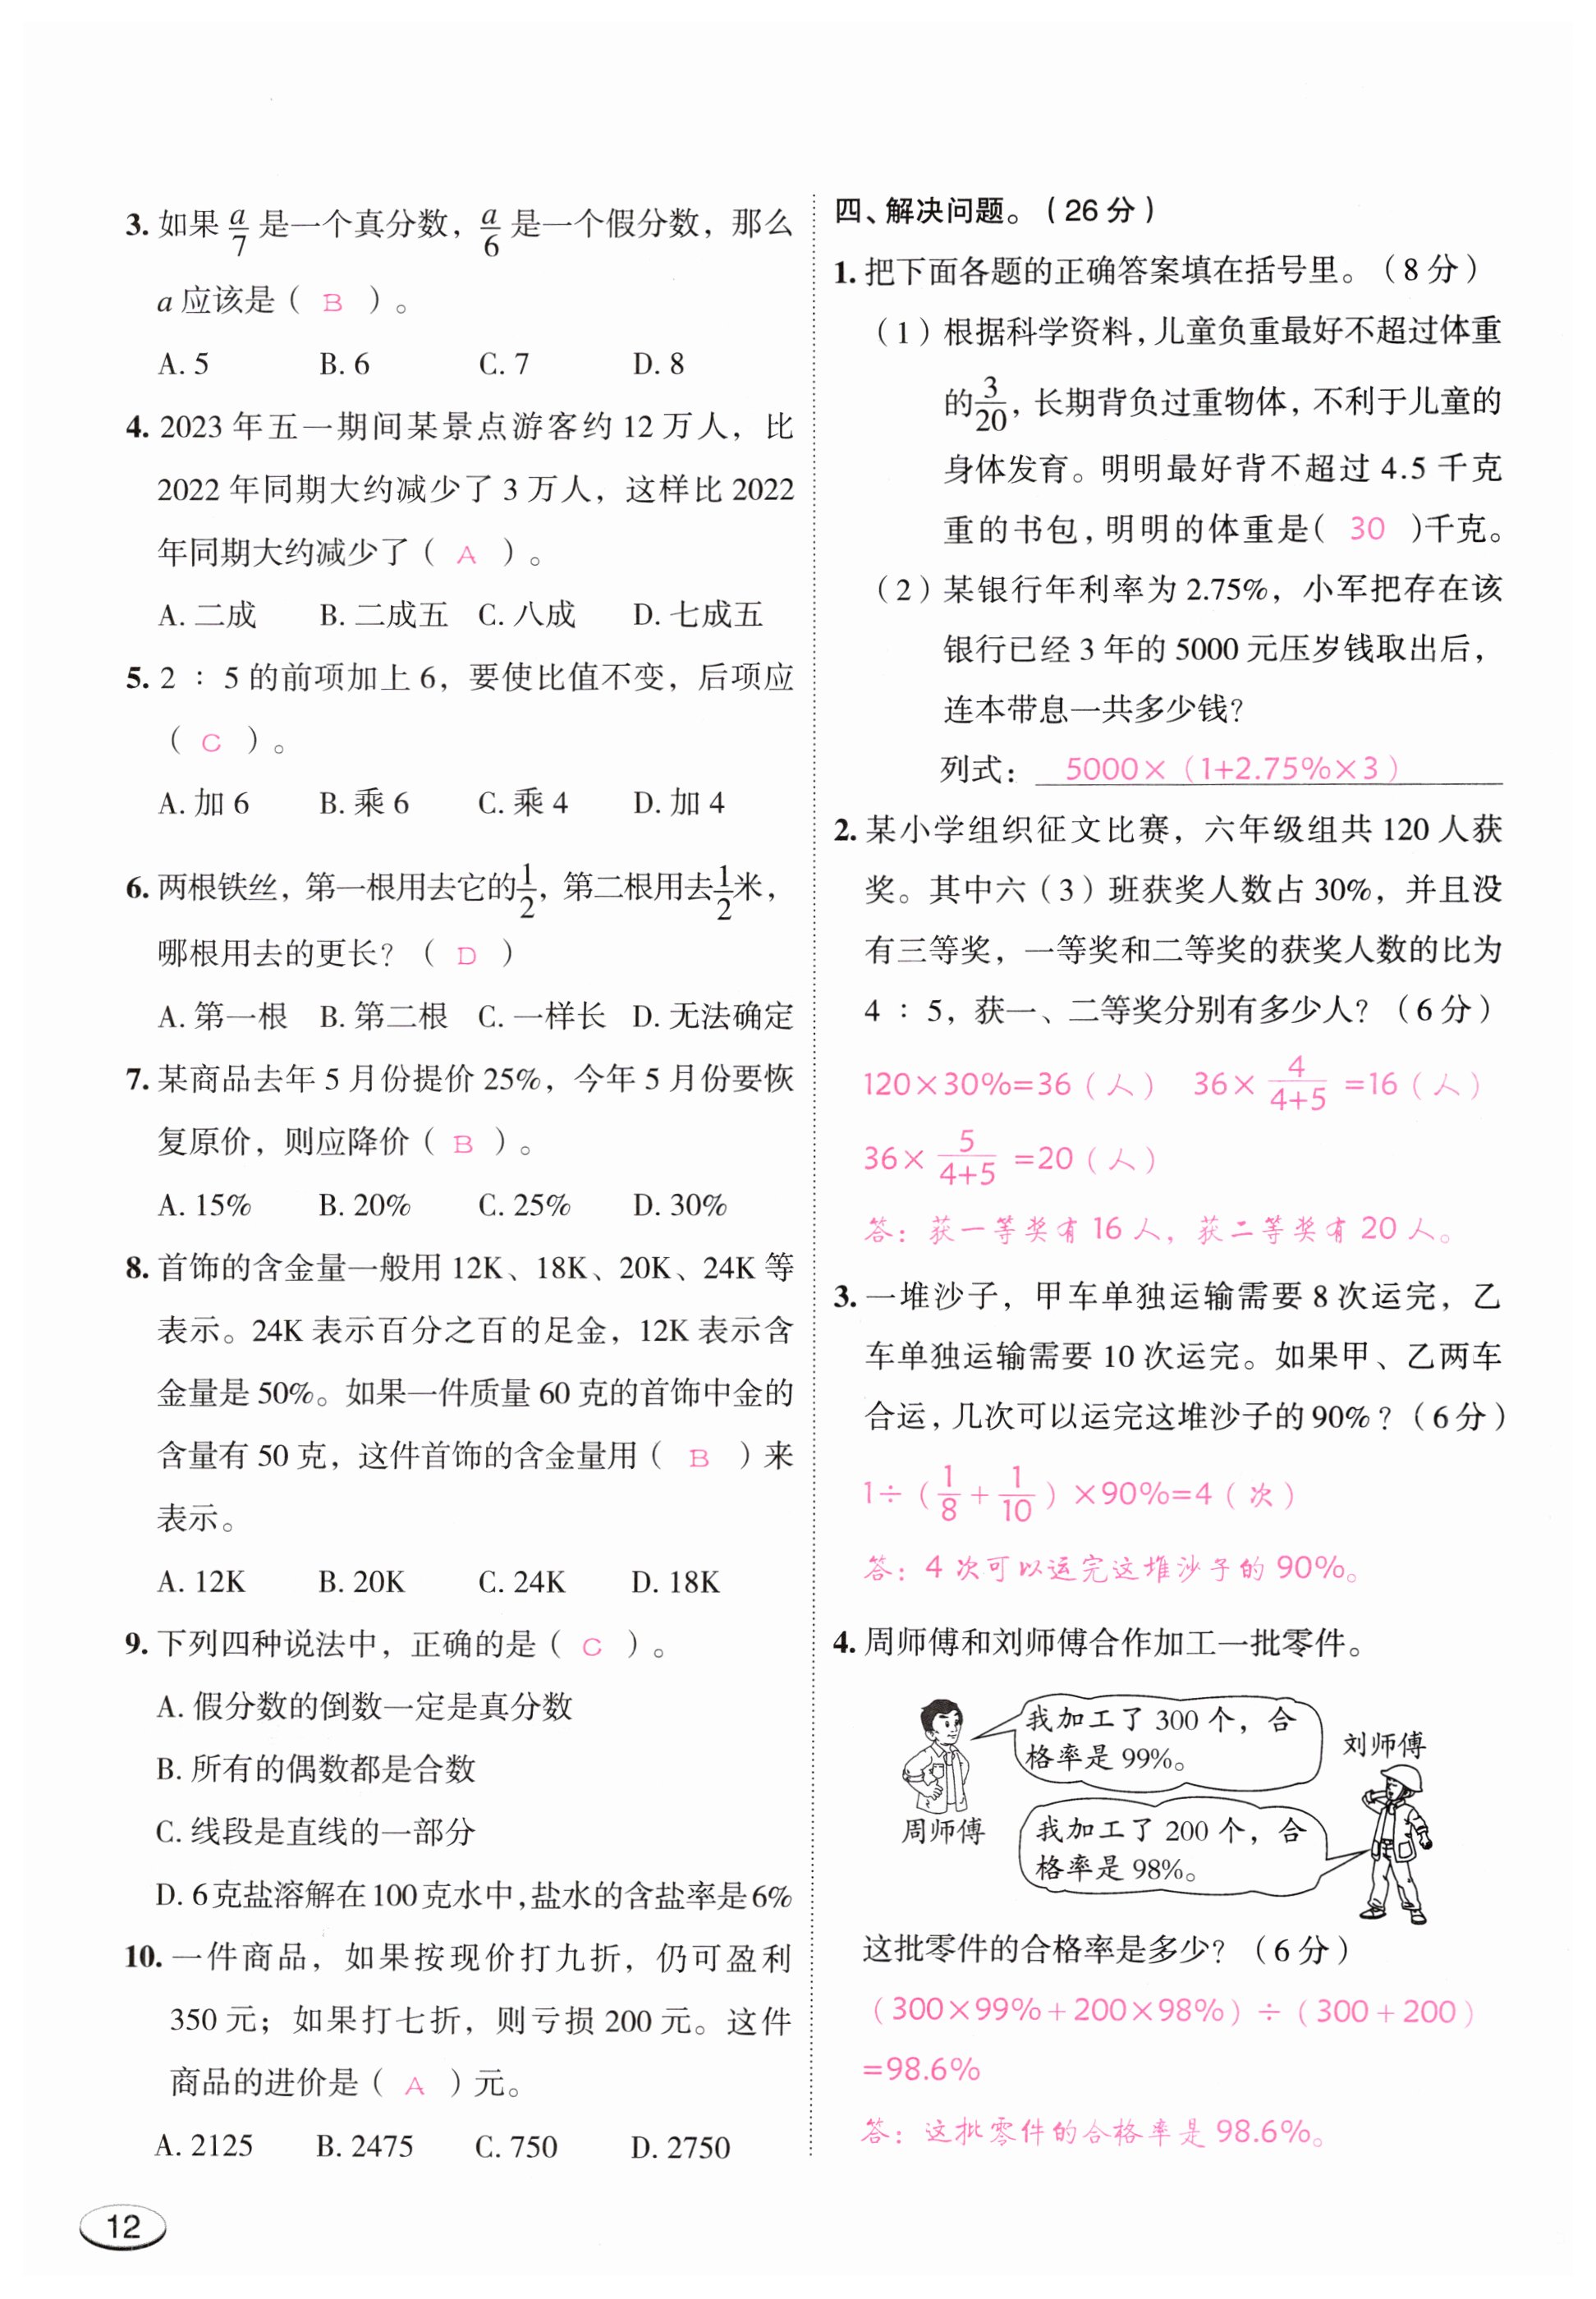 3. 如果 a/7 是一个真分数，a/6 是一个假分数，那么
a 应该是（ B ）。
A. 5 B. 6 C. 7 D. 8
4. 2023 年五一期间某景点游客约 12 万人，比
2022 年同期大约减少了 3 万人，这样比 2022
年同期大约减少了（ A ）。
A. 二成 B. 二成五 C. 八成 D. 七成五
5. 2 ∶ 5 的前项加上 6，要使比值不变，后项应
（ C ）。
A. 加 6 B. 乘 6 C. 乘 4 D. 加 4
6. 两根铁丝，第一根用去它的1/2，第二根用去1/2米，
哪根用去的更长？（ D ）
A. 第一根 B. 第二根 C. 一样长 D. 无法确定
7. 某商品去年 5 月份提价 25%，今年 5 月份要恢
复原价，则应降价（ B ）。
A. 15% B. 20% C. 25% D. 30%
8. 首饰的含金量一般用 12K、18K、20K、24K 等
表示。24K 表示百分之百的足金，12K 表示含
金量是 50%。如果一件质量 60 克的首饰中金的
含量有 50 克，这件首饰的含金量用（ B ）来
表示。
A. 12K B. 20K C. 24K D. 18K
9. 下列四种说法中，正确的是（ C ）。
A. 假分数的倒数一定是真分数
B. 所有的偶数都是合数
C. 线段是直线的一部分
D. 6克盐溶解在100克水中，盐水的含盐率是6%
10. 一件商品，如果按现价打九折，仍可盈利
350 元；如果打七折，则亏损 200 元。这件
商品的进价是（ A ）元。
A. 2125 B. 2475 C. 750 D. 2750
12
四、解决问题。（26 分）
1. 把下面各题的正确答案填在括号里。（8 分）
（1）根据科学资料，儿童负重最好不超过体重
的3/20，长期背负过重物体，不利于儿童的
身体发育。明明最好背不超过 4.5 千克
重的书包，明明的体重是( 30 )千克。
（2）某银行年利率为 2.75%，小军把存在该
银行已经 3 年的 5000 元压岁钱取出后，
连本带息一共多少钱？
列式： 5000×（1+2.75%×3）
2. 某小学组织征文比赛，六年级组共 120 人获
奖。其中六（3）班获奖人数占 30%，并且没
有三等奖，一等奖和二等奖的获奖人数的比为
4 ∶ 5，获一、二等奖分别有多少人？（6 分）
120×30%=36（人） 36× 4/(4+5) =16（人）
36× 5/(4+5) =20（人）
答：获一等奖有 16 人，获二等奖有 20 人。
3. 一堆沙子，甲车单独运输需要 8 次运完，乙
车单独运输需要 10 次运完。如果甲、乙两车
合运，几次可以运完这堆沙子的 90%？（6 分）
1÷（1/8 + 1/10）×90%=4（次）
答：4 次可以运完这堆沙子的 90%。
4. 周师傅和刘师傅合作加工一批零件。
我加工了 300 个，合
格率是 99%。
刘师傅
周师傅
我加工了 200 个，合
格率是 98%。
这批零件的合格率是多少？（6 分）
（300×99%+200×98%）÷（300+200）
=98.6%
答：这批零件的合格率是 98.6%。